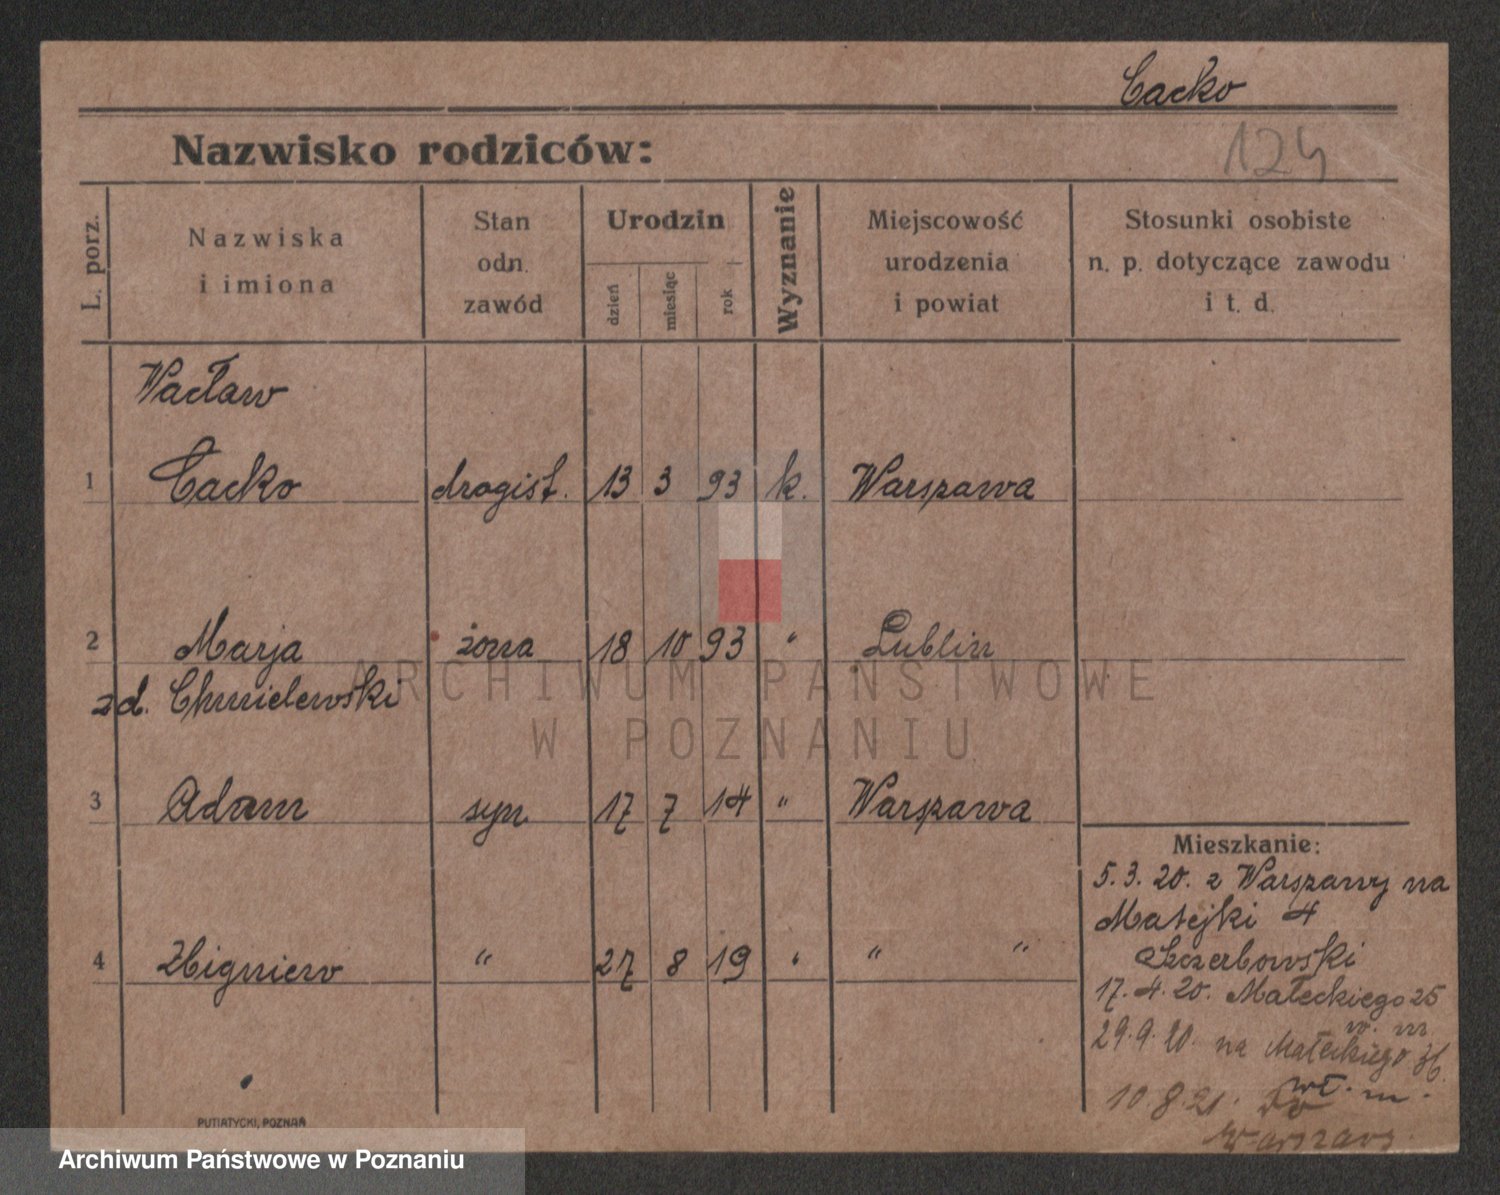 Cacko
Nazwisko rodziców:
124
L. porz.
Nazwiska
i imiona
Stan
odn.
zawód
Urodzin
dzień
miesiąc
rok
Wyznanie
Miejscowość
urodzenia
i powiat
Stosunki osobiste
n. p. dotyczące zawodu
i t. d.
Wacław
1 Cacko drogist. 13 3 93 k. Warszawa
2 Marja żona 18 10 93 " Lublin
zd. Chmielewski
3 Adam syn 17 7 14 " Warszawa
4 Zbigniew " 27 8 19 " " "
Mieszkanie:
5.3.20. z Warszawy na
Matejki 4
Szczerbowski
17.4.20. Małeckiego 25
w. m
29.9.20. na Małeckiego 36.
wł. m.
10.8.21. do
Warszawy.
PUTIATYCKI, POZNAŃ
ARCHIWUM PAŃSTWOWE
W POZNANIU
Archiwum Państwowe w Poznaniu